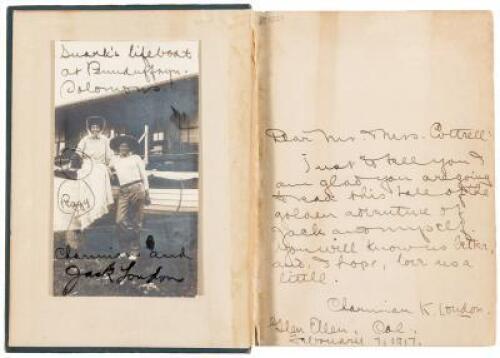 Snark's lifeboat
at Penduffryn.
Solomons
Peggy
Charmian and
Jack London
Dear Mr. & Mrs. Cottrell:
Just to tell you I
am glad you are going
to read this tale of the
golden adventure of
Jack and myself.
You will know us better,
and, I hope, love us a
little.
Charmian K. London.
Glen Ellen, Cal.
February 7, 1917.